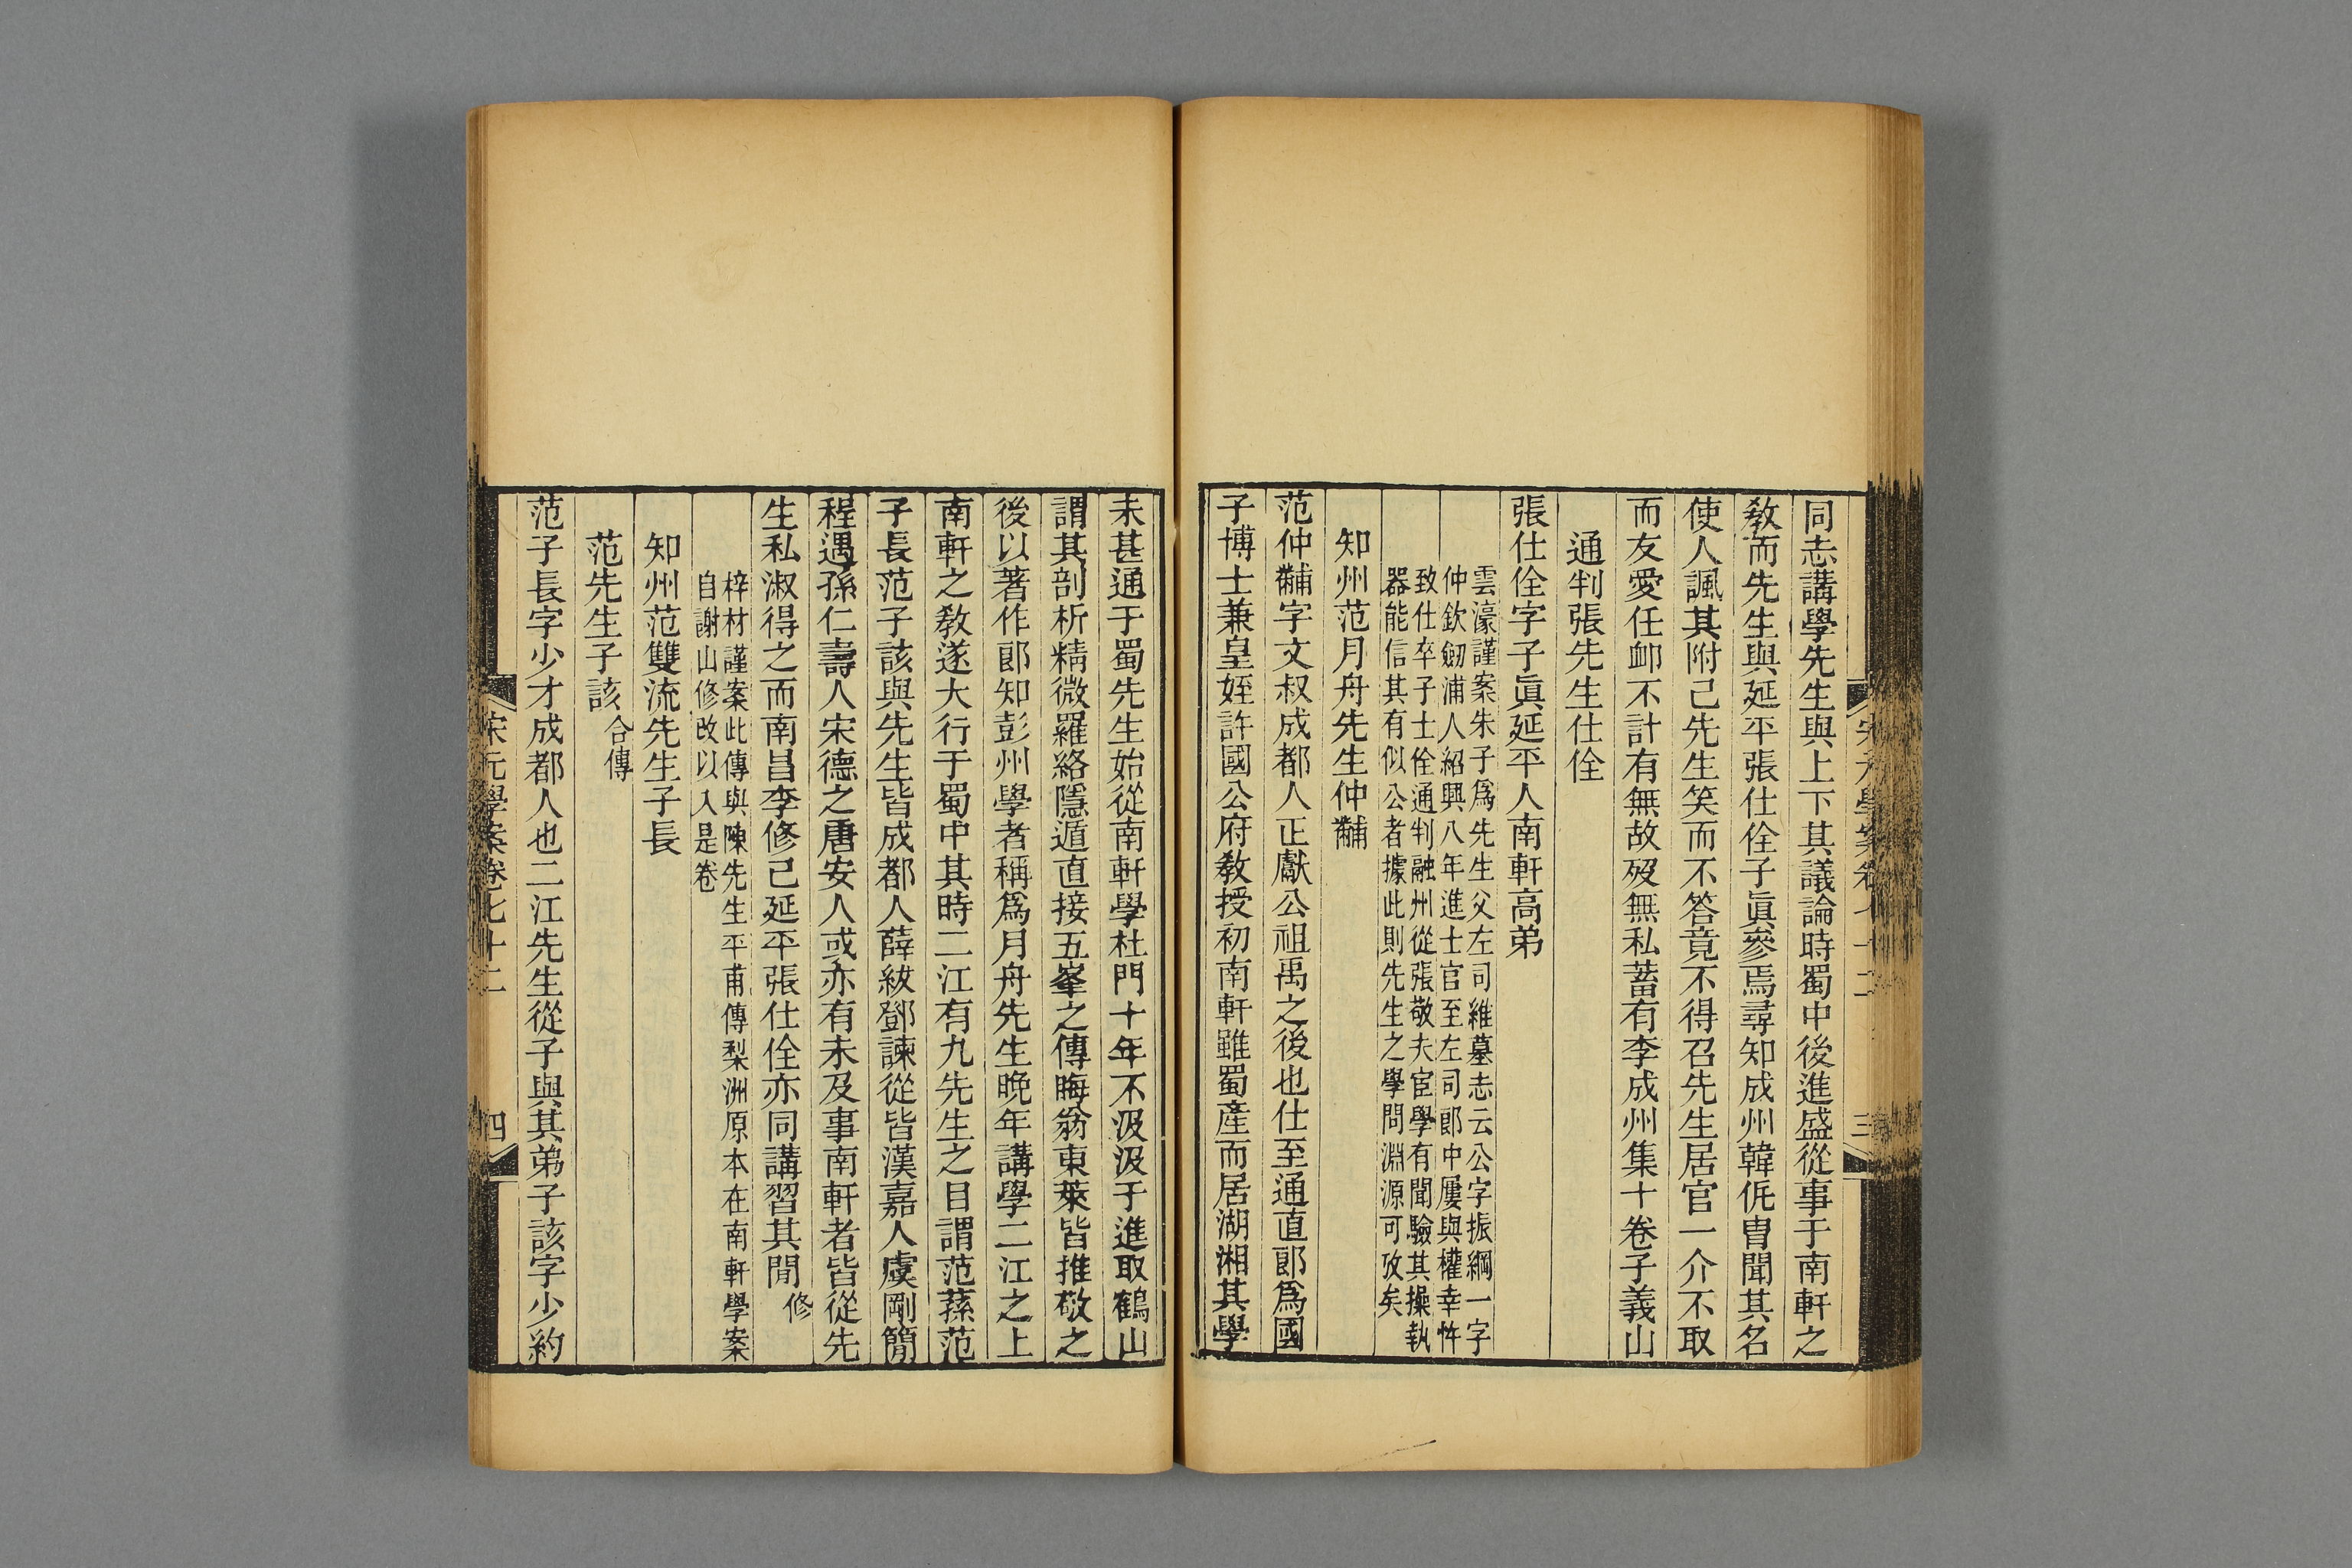 同志講學先生與上下其議論時蜀中後進盛從事于南軒之
敎而先生與延平張仕佺子眞參焉尋知成州韓侂冑聞其名
使人諷其附己先生笑而不答竟不得召先生居官一介不取
而友愛任卹不計有無故歿無私蓄有李成州集十卷子義山
通判張先生仕佺
張仕佺字子眞延平人南軒高弟
雲濠謹案朱子爲先生父左司維墓志云公字振綱一字
仲欽劒浦人紹興八年進士官至左司郞中屢與權幸忤
致仕卒子士佺通判融州從張敬夫宦學有聞驗其操執
器能信其有似公者據此則先生之學問淵源可攷矣
知州范月舟先生仲黼
范仲黼字文叔成都人正獻公祖禹之後也仕至通直郞爲國
子博士兼皇姪許國公府敎授初南軒雖蜀產而居湖湘其學
未甚通于蜀先生始從南軒學杜門十年不汲汲于進取鶴山
謂其剖析精微羅絡隱遁直接五峯之傳晦翁東萊皆推敬之
後以著作郞知彭州學者稱爲月舟先生晚年講學二江之上
南軒之敎遂大行于蜀中其時二江有九先生之目謂范蓀范
子長范子該與先生皆成都人薛紱鄧諫從皆漢嘉人虞剛簡
程遇孫仁壽人宋德之唐安人或亦有未及事南軒者皆從先
生私淑得之而南昌李修己延平張仕佺亦同講習其閒修
梓材謹案此傳與陳先生平甫傳梨洲原本在南軒學案
自謝山修改以入是卷
知州范雙流先生子長
范先生子該合傳
范子長字少才成都人也二江先生從子與其弟子該字少約
宋元學案卷七十二
四